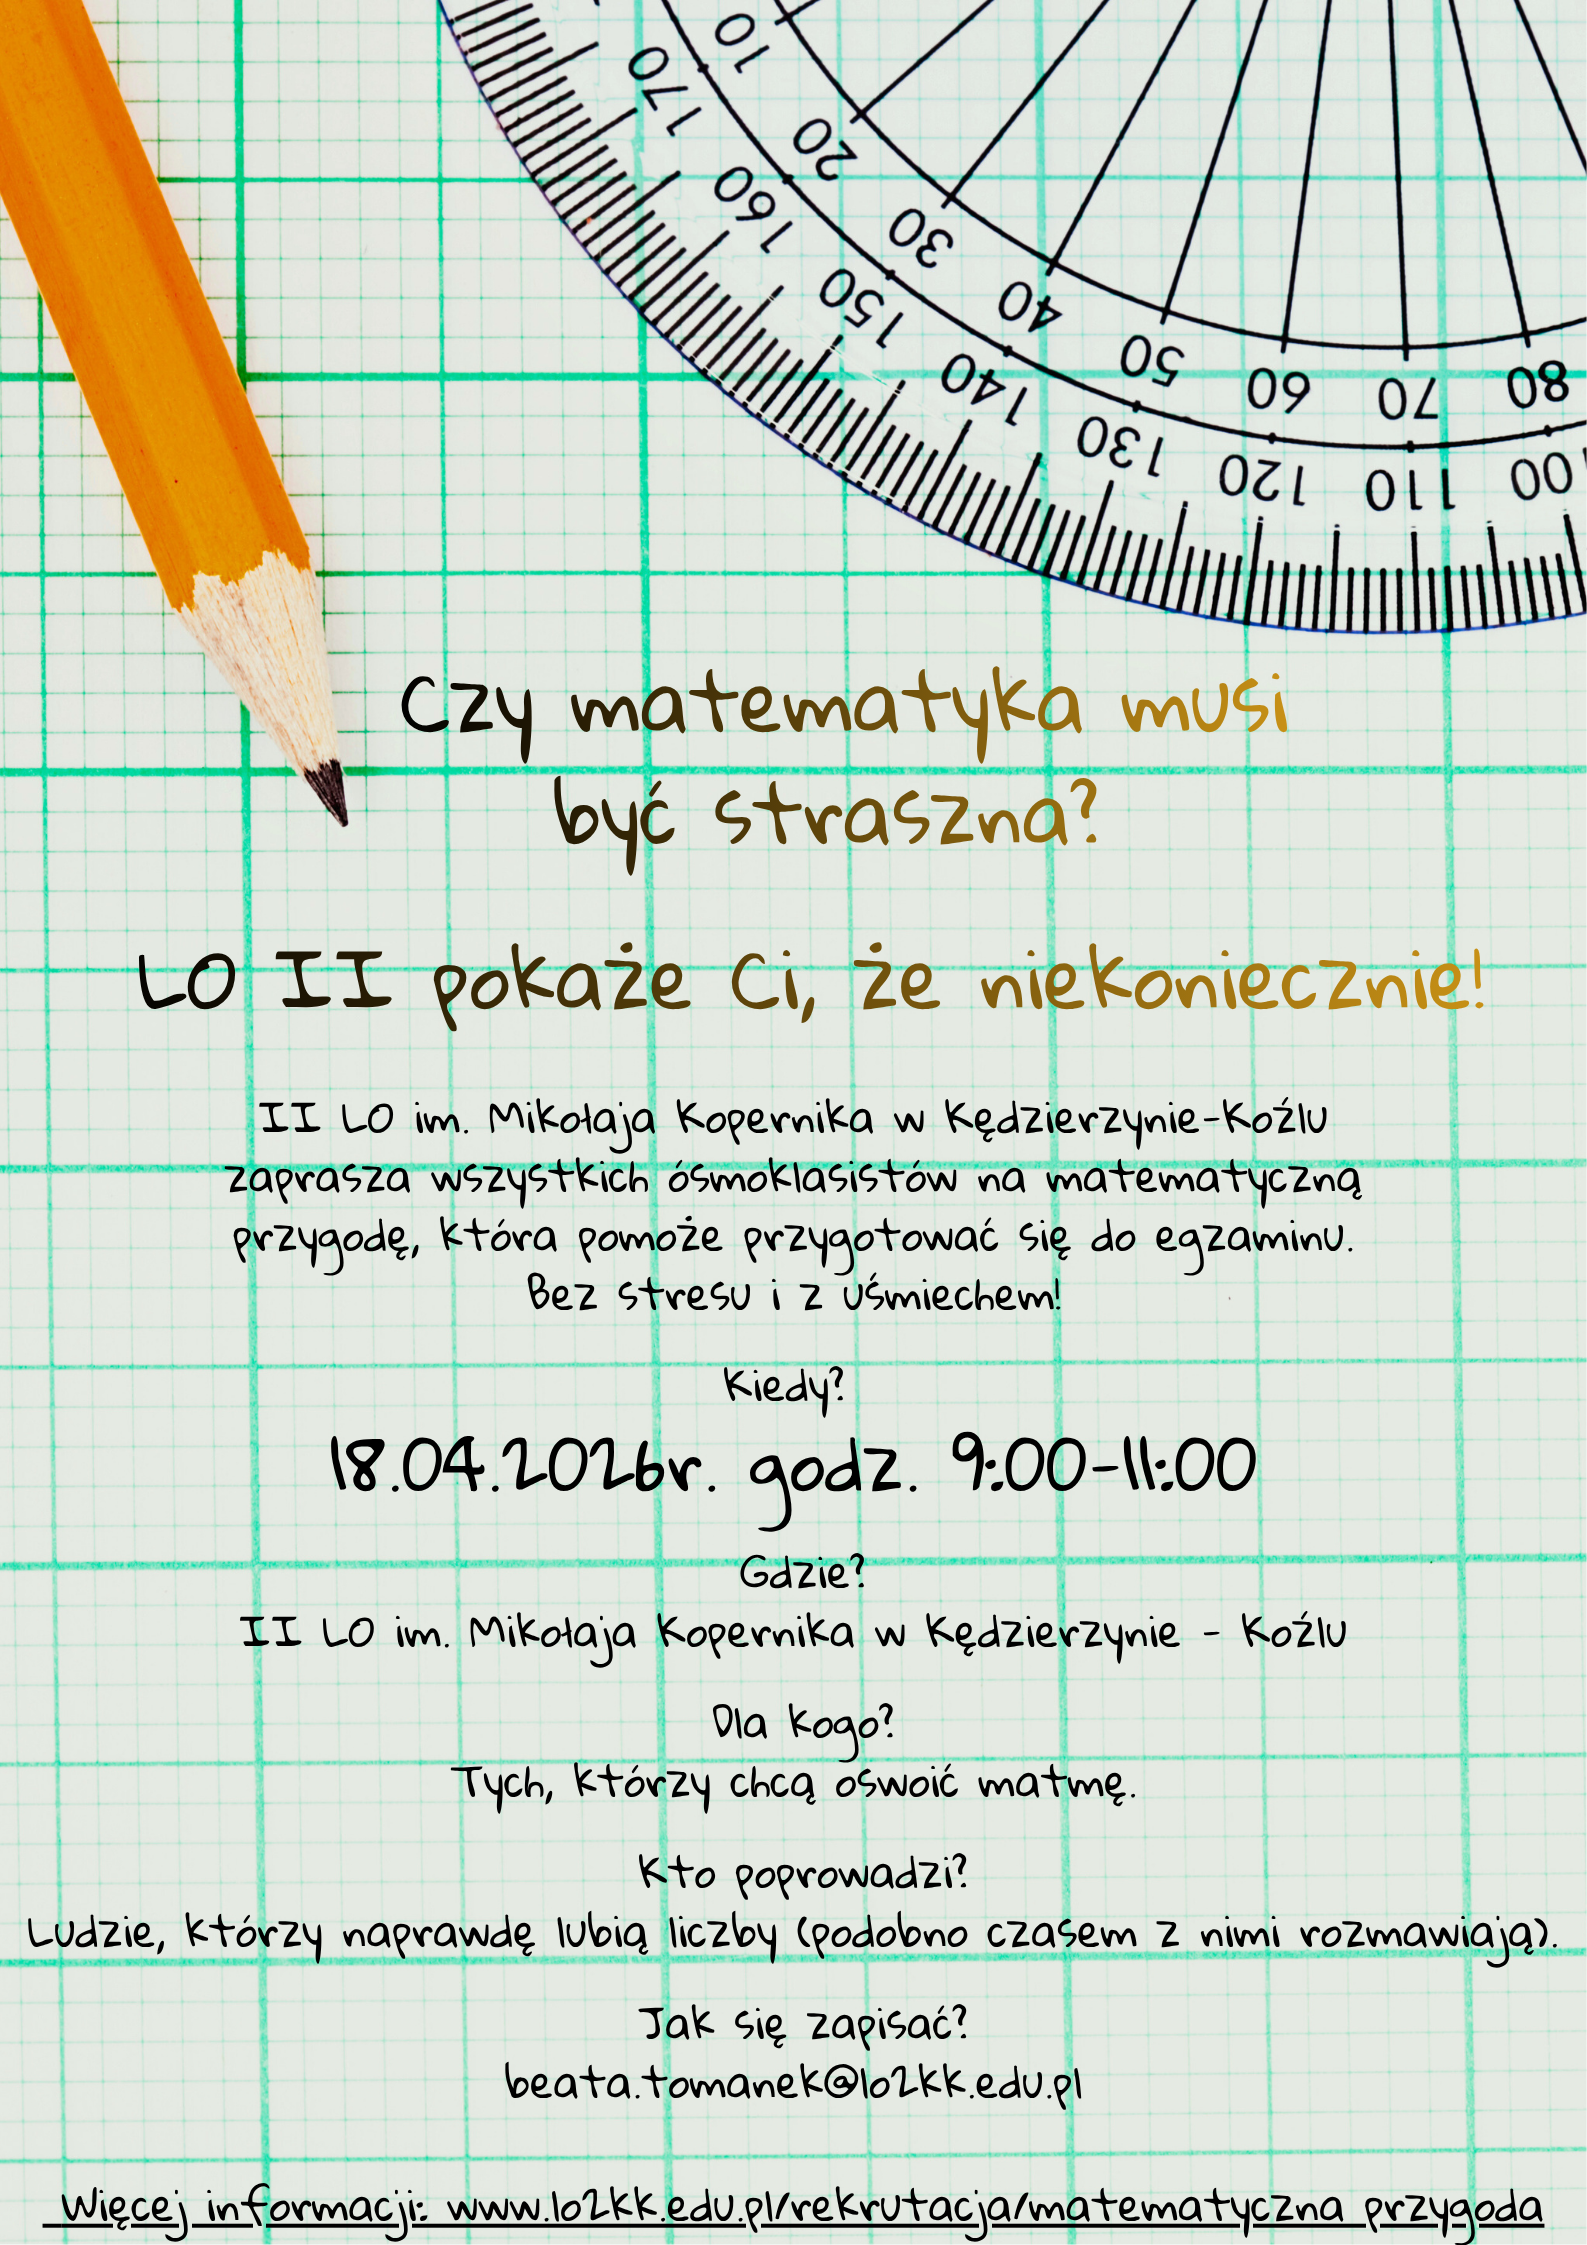 10
170
20
160
30
150
40
140
50
130
60
120
70
110
80
00
Czy matematyka musi
być straszna?
LO II pokaże Ci, że niekoniecznie!
II LO im. Mikołaja Kopernika w Kędzierzynie-Koźlu
zaprasza wszystkich ósmoklasistów na matematyczną
przygodę, która pomoże przygotować się do egzaminu.
Bez stresu i z uśmiechem!
Kiedy?
18.04.2026r. godz. 9:00-11:00
Gdzie?
II LO im. Mikołaja Kopernika w Kędzierzynie - Koźlu
Dla kogo?
Tych, którzy chcą oswoić matmę.
Kto poprowadzi?
Ludzie, którzy naprawdę lubią liczby (podobno czasem z nimi rozmawiają).
Jak się zapisać?
beata.tomanek@lo2kk.edu.pl
Więcej informacji: www.lo2kk.edu.pl/rekrutacja/matematyczna przygoda